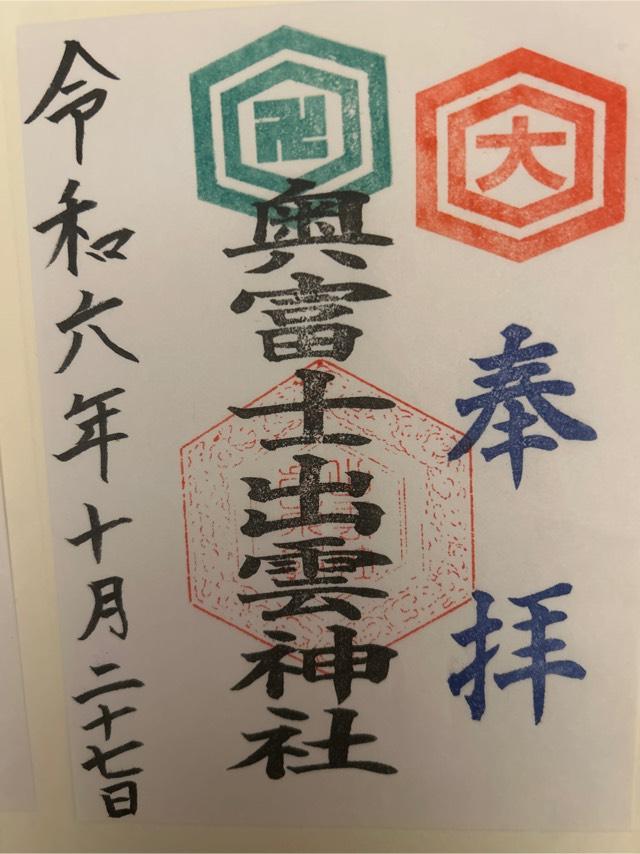 大
奉拝
卍
奥富士出雲神社
令和六年十月二十七日